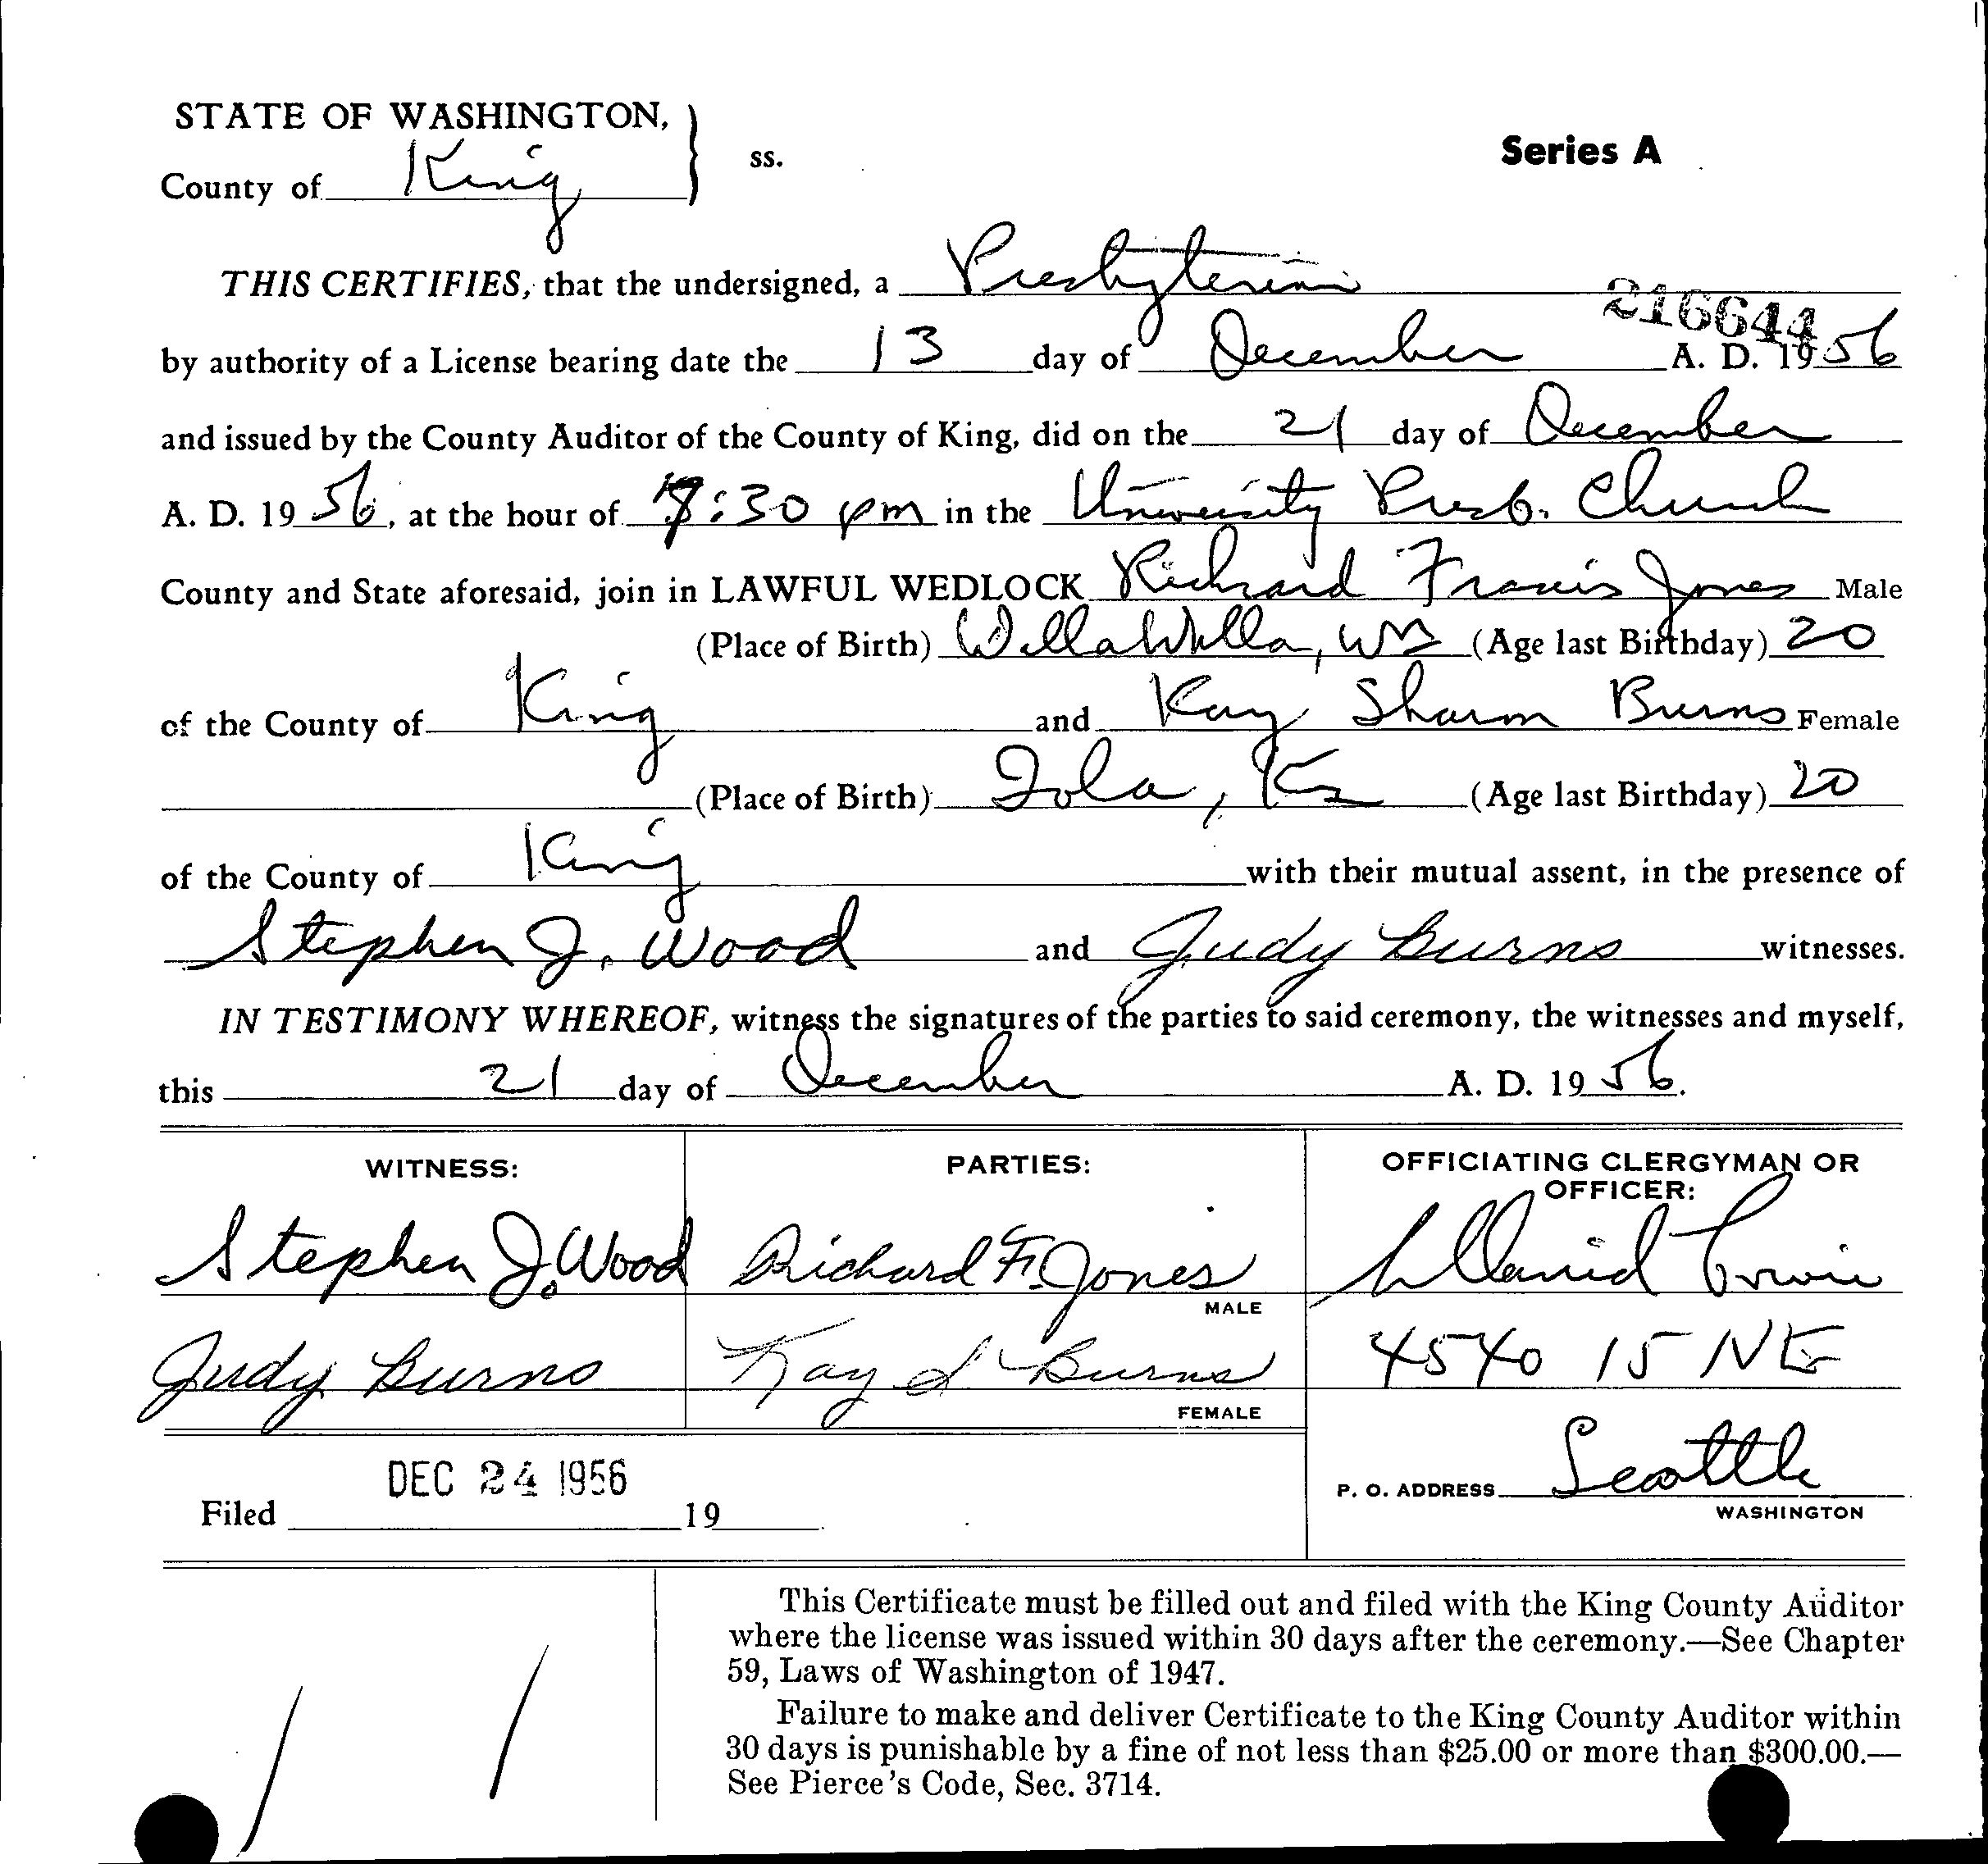 STATE OF WASHINGTON,
County of King ss.
Series A
THIS CERTIFIES, that the undersigned, a Presbyterian
216644
by authority of a License bearing date the 13 day of December A. D. 1956
and issued by the County Auditor of the County of King, did on the 21 day of December
A. D. 1956, at the hour of :30 pm in the University Presb. Church
County and State aforesaid, join in LAWFUL WEDLOCK Richard Francis Jones Male
(Place of Birth) Walla Walla, Wn (Age last Birthday) 20
of the County of King and Kay Sharon Burns Female
(Place of Birth) Iola, Ks (Age last Birthday) 20
of the County of King with their mutual assent, in the presence of
Stephen J. Wood and Judy Burns witnesses.
IN TESTIMONY WHEREOF, witness the signatures of the parties to said ceremony, the witnesses and myself,
this 21 day of December A. D. 1956.
WITNESS: PARTIES: OFFICIATING CLERGYMAN OR
OFFICER:
Stephen J. Wood Richard F. Jones David
MALE
Judy Burns Kay S Burns 4540 15 NE
FEMALE
DEC 24 1956
Filed 19
P. O. ADDRESS Seattle
WASHINGTON
This Certificate must be filled out and filed with the King County Auditor
where the license was issued within 30 days after the ceremony.—See Chapter
59, Laws of Washington of 1947.
Failure to make and deliver Certificate to the King County Auditor within
30 days is punishable by a fine of not less than $25.00 or more than $300.00.—
See Pierce's Code, Sec. 3714.